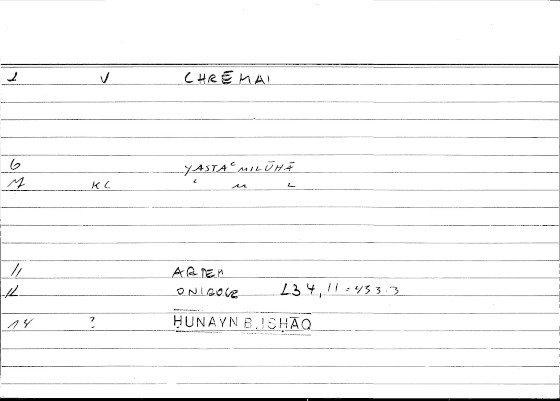 1 V CHRĒMAI
6 YASTAᶜMILŪHĀ
M KC ᶜ M L
11 ARTEM
12 ONIROCR 234,11=453.3
14 ? ḤUNAYN B. ISḤĀQ